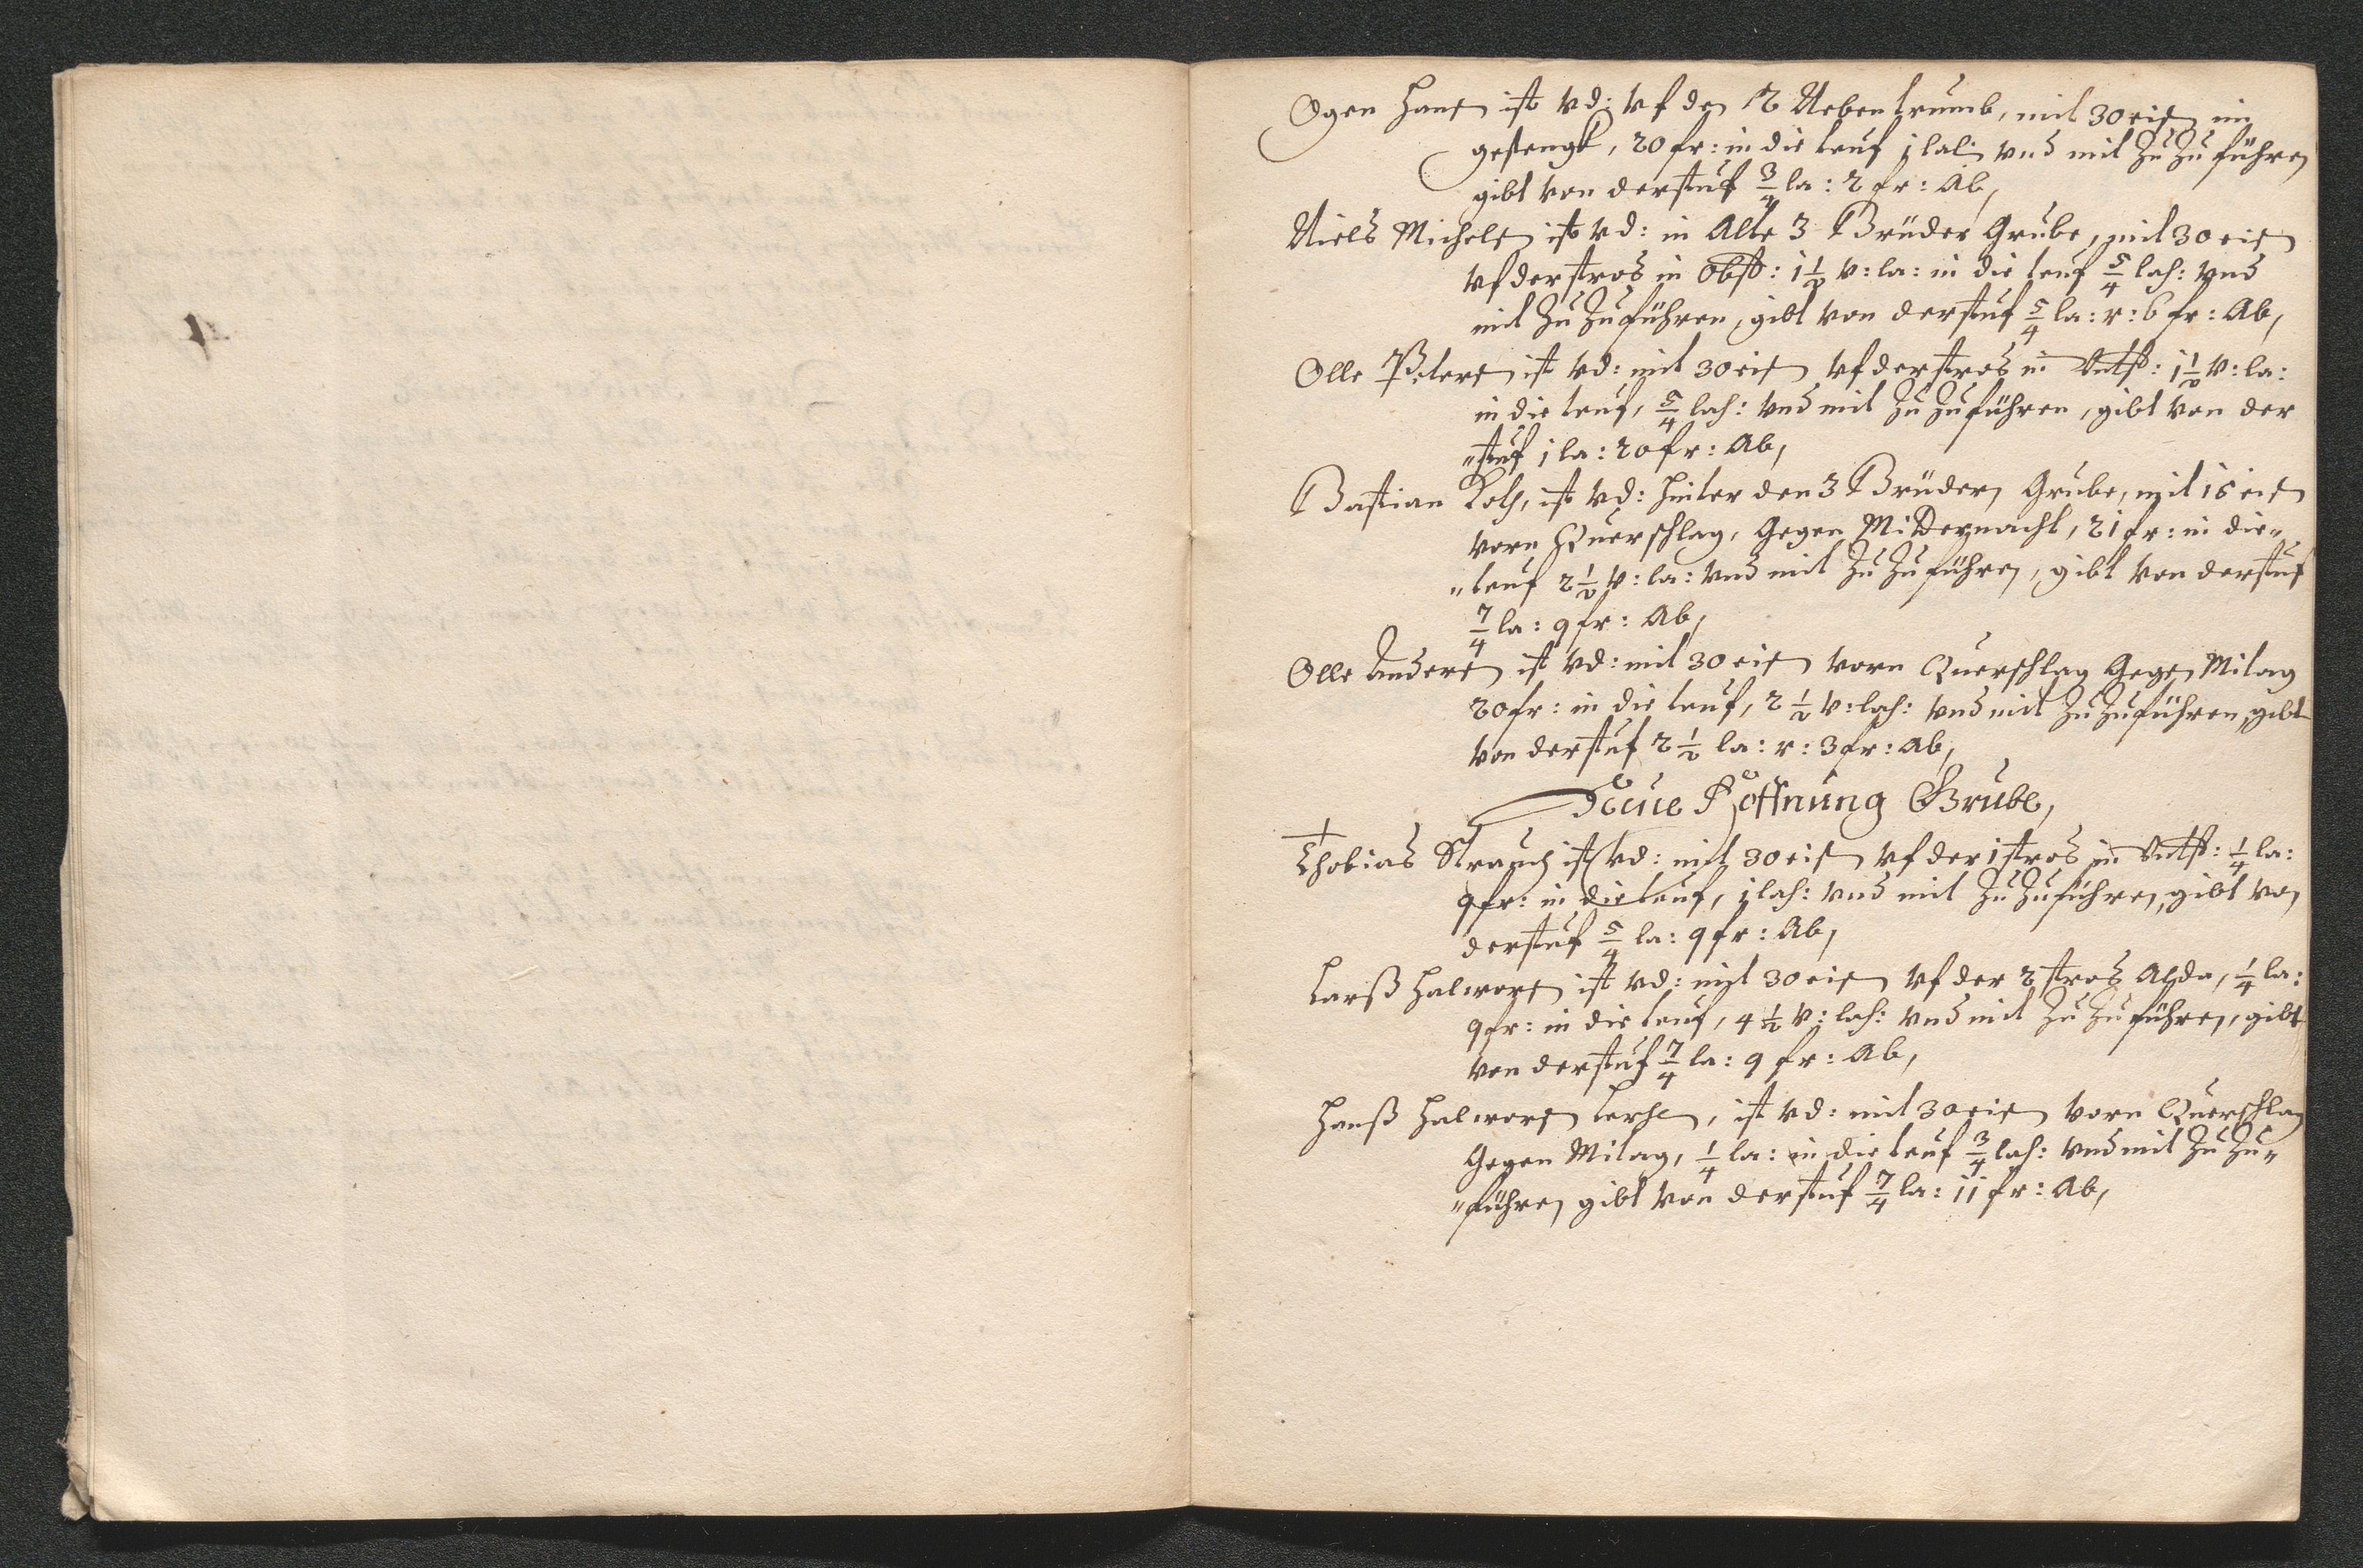 Ogen Hanß ist vd: vf den 2 Neben trumb, mit 30 eiß im
gesengk, 20 fr: in die teuf j lah: vnd mit Zu Zu führen
gibt von der stuf 3/4 la: 2 fr: Ab,
Niels Michelß ist vd: in Alte 3 Brüder Grube, mit 30 eiß
vf der stros in Obst: 1 1/2 v: la: in die teuf 5/4 lah: vnd
mit Zu Zu führen, gibt von der stuf 5/4 la: r: 6 fr: Ab,
Olle Peterß ist vd: mit 30 eiß vf der stros in Untst: 1 1/2 v: la:
in die teuf, 5/4 lah: vnd mit Zu Zu führen, gibt von der
"stuf j la: 20 fr: Ab,
Bastian Koch, ist vd: hinter den 3 Brüder Grube, mit 15 eiß
vorn Querschlag, Gegen Mitternacht, 21 fr: in die"
"teuf 2 1/2 v: la: vnd mit Zu Zu führen, gibt von der stuf
7/4 la: 9 fr: Ab,
Olle Anderß ist vd: mit 30 eiß vorn Querschlag Gegen Mitag
20 fr: in die teuf, 2 1/2 v: lah: vnd mit Zu Zu führen, gibt
von der stuf 2 1/2 la: r: 3 fr: Ab,
Neue Hoffnung Grube,
Thobias Strauch ist vd: mit 30 eiß vf der 1 stros in Untst: 1/4 la:
9 fr: in die teuf, j lah: vnd mit Zu Zu führen, gibt von
der stuf 5/4 la: 9 fr: Ab,
Larß Halworß ist vd: mit 30 eiß vf der 2 stros Alda, 1/4 la:
9 fr: in die teuf, 4 1/2 v: lah: vnd mit Zu Zu führen, gibt
von der stuf 7/4 la: 9 fr: Ab,
Hanß Halworß, ist vd: mit 30 eiß vorn Querschlag
Gegen Mitag, 1/4 la: in die teuf 3/4 lah: vnd mit Zu Zu"
"führen gibt von der stuf 7/4 la: 11 fr: Ab,